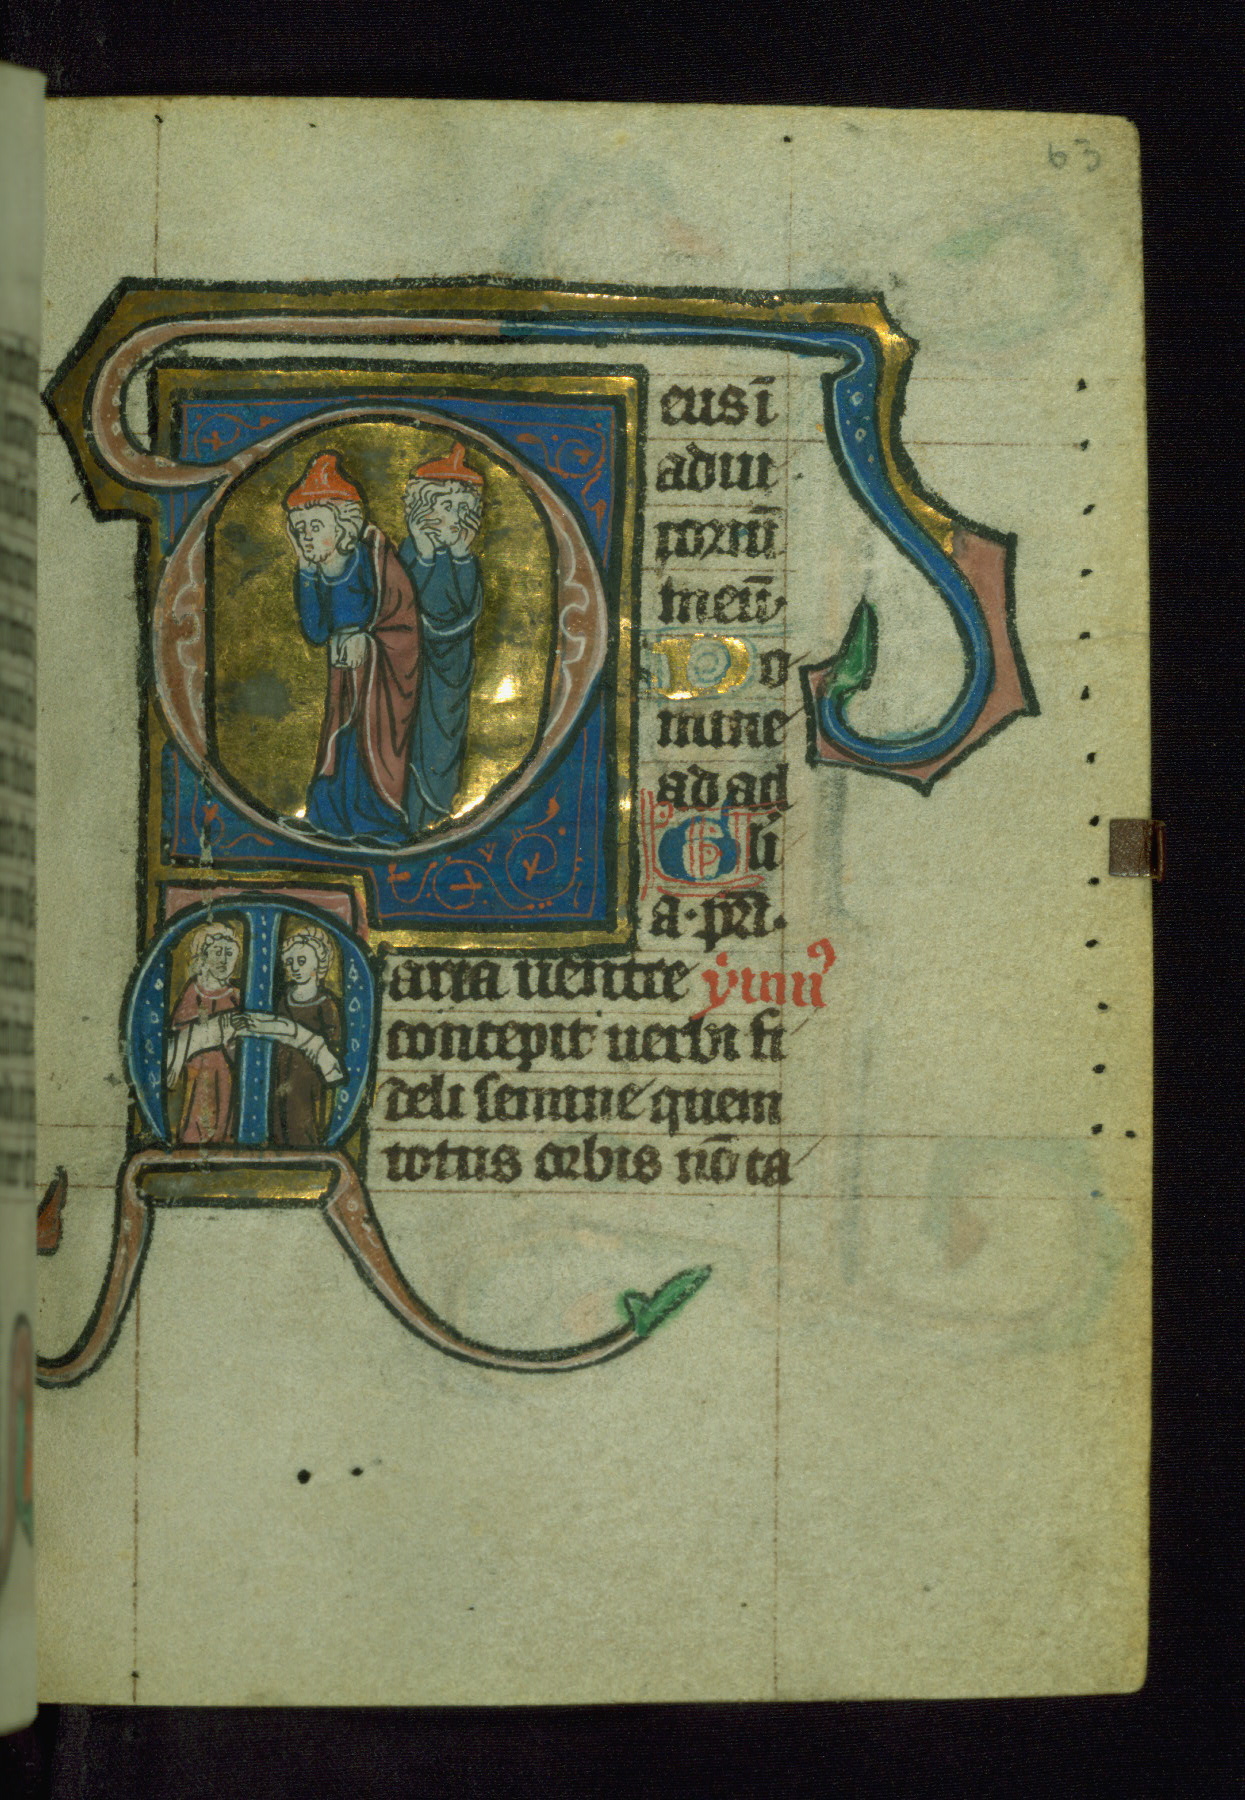 63
Deus ī
adiu
toriū
meū
Do
mine
ad ad
Gli
a. pri.
Maria uentre ymnus
concepit uerbi fi
deli semine quem
totus orbis nō ca